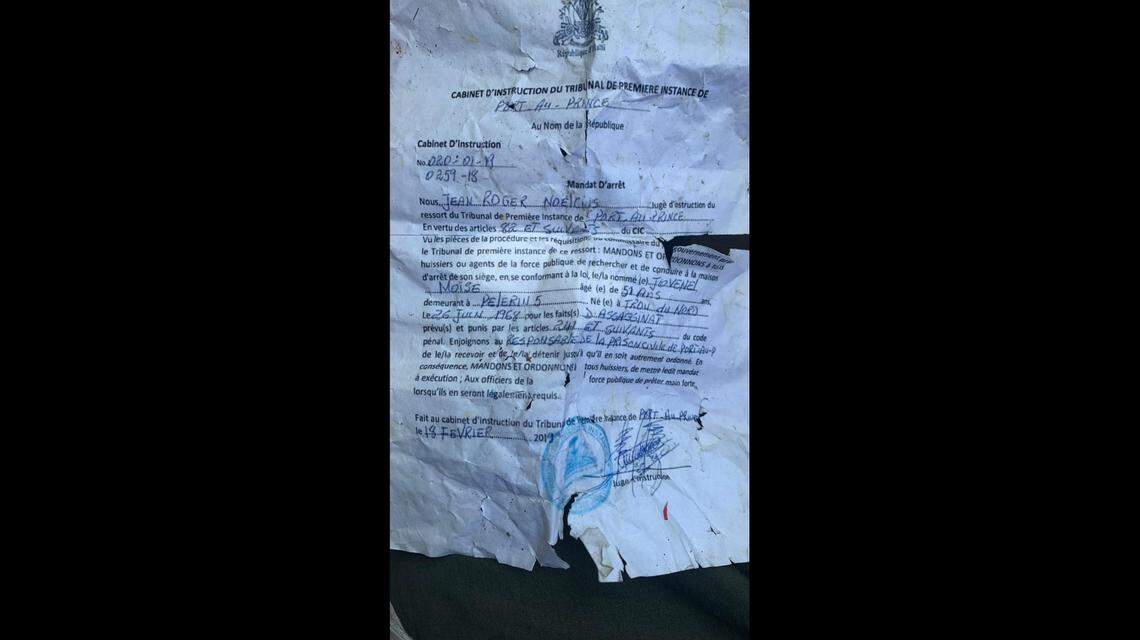 République d'Haïti
CABINET D'INSTRUCTION DU TRIBUNAL DE PREMIERE INSTANCE DE
PORT-AU-PRINCE
Au Nom de la République
Cabinet D'Instruction
No. 020-01-19
0259-18
Mandat D'arrêt
Nous, JEAN ROGER NOELCIUS Jugè d'estruction du
ressort du Tribunal de Première Instance de PORT-AU-PRINCE
En vertu des articles 82 ET SUIVANTS du CIC
Vu les pièces de la procédure et les réquisitions du commissaire du gouvernement près
le Tribunal de première instance de ce ressort : MANDONS ET ORDONNONS à tous
huissiers ou agents de la force publique de rechercher et de conduire à la maison
d'arrêt de son siège, en se conformant à la loi, le/la nommé (e) JOVENEL
MOISE âgé (e) de 51 ANS ans,
demeurant à PELERIN 5 Né (e) à TROU DU NORD
Le 26 JUIN 1968 pour les faits(s) D'ASSASSINAT
prévu(s) et punis par les articles 241 ET SUIVANTS du code
pénal. Enjoignons au RESPONSABLE DE LA PRISON CIVILE DE PORT-AU-P
de le/la recevoir et de le/la détenir jusqu'à qu'il en soit autrement ordonné. En
conséquence, MANDONS ET ORDONNONS tous huissiers, de mettre ledit mandat
à exécution ; Aux officiers de la force publique de prêter main forte
lorsqu'ils en seront légalement requis.
Fait au cabinet d'instruction du Tribunal de Première Instance de PORT-AU-PRINCE
le 18 FEVRIER 2019
Juge d'instruction